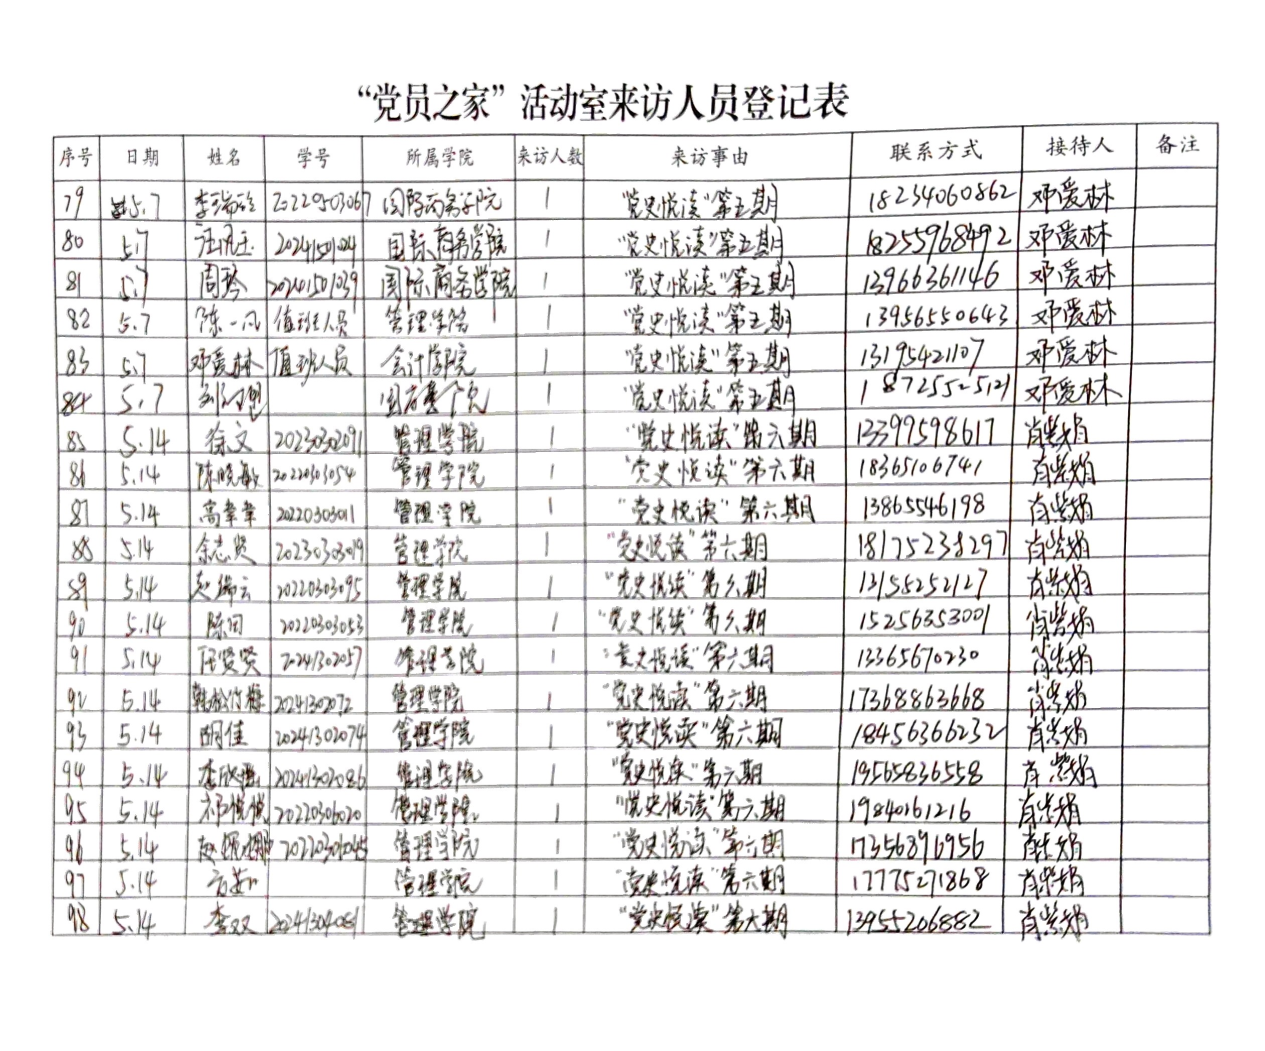 “党员之家”活动室来访人员登记表
序号 日期 姓名 学号 所属学院 来访人数 来访事由 联系方式 接待人 备注
79 5.7 李瑞 20220503067 国际商务学院 1 “党史悦读”第五期 18234060862 邓爱林
80 5.7 汪 20241501024 国际商务学院 1 “党史悦读”第五期 18255968492 邓爱林
81 5.7 周 20241501039 国际商务学院 1 “党史悦读”第五期 13966361146 邓爱林
82 5.7 陈一凡 值班人员 管理学院 1 “党史悦读”第五期 13956550643 邓爱林
83 5.7 邓爱林 值班人员 会计学院 1 “党史悦读”第五期 13195421107 邓爱林
84 5.7 1 “党史悦读”第五期 18725525121 邓爱林
85 5.14 徐文 20230302091 管理学院 1 “党史悦读”第六期 13399598617 肖紫娟
86 5.14 陈晓敏 20220303054 管理学院 1 “党史悦读”第六期 18365106741 肖紫娟
87 5.14 高幸幸 20220303011 管理学院 1 “党史悦读”第六期 13865546198 肖紫娟
88 5.14 余志贤 20230303019 管理学院 1 “党史悦读”第六期 18175238297 肖紫娟
89 5.14 赵瑞云 20220303095 管理学院 1 “党史悦读”第六期 13155252127 肖紫娟
90 5.14 陈田 20220303053 管理学院 1 “党史悦读”第六期 15256353001 肖紫娟
91 5.14 任贤贤 20241302057 管理学院 1 “党史悦读”第六期 13365670230 肖紫娟
92 5.14 韩 20241302072 管理学院 1 “党史悦读”第六期 17368863668 肖紫娟
93 5.14 胡佳 20241302074 管理学院 1 “党史悦读”第六期 18456366232 肖紫娟
94 5.14 李欣 20241302086 管理学院 1 “党史悦读”第六期 19565836558 肖紫娟
95 5.14 祁悦悦 20220306020 管理学院 1 “党史悦读”第六期 19840161216 肖紫娟
96 5.14 赵 20220306045 管理学院 1 “党史悦读”第六期 17356896956 肖紫娟
97 5.14 管理学院 1 “党史悦读”第六期 17775271868 肖紫娟
98 5.14 李双 20241304081 管理学院 1 “党史悦读”第六期 13955206882 肖紫娟